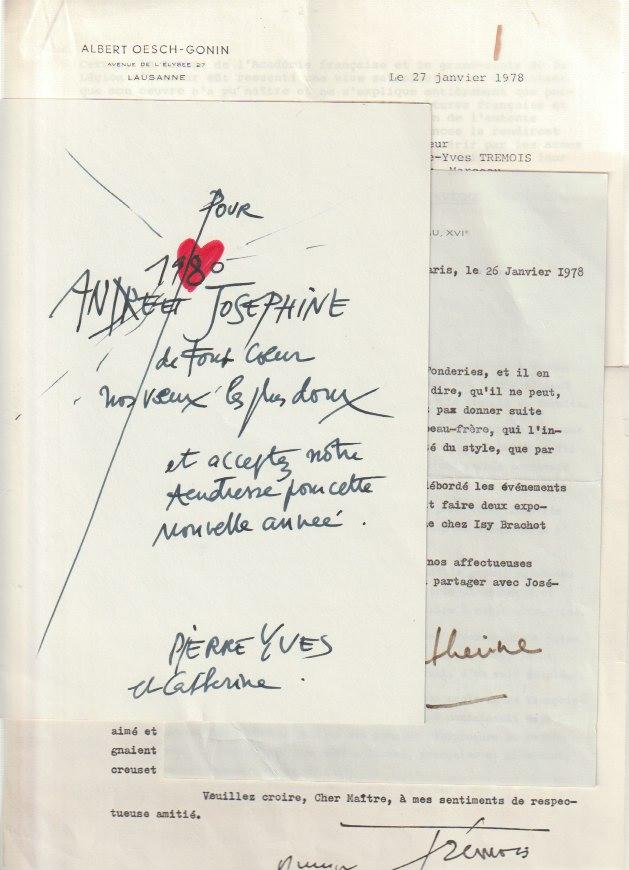 ALBERT OESCH-GONIN
AVENUE DE L'ÉLYSÉE 27
LAUSANNE
Le 27 janvier 1978
eur
e-Yves TREMOIS
POUR
1980
ANDRE et JOSEPHINE
de tout Coeur
nos vœux les plus doux
et acceptez notre
tendresse pour cette
Nouvelle année.
PIERRE YVES
et Catherine.
AU, XVIe
aris, le 26 Janvier 1978
onderies, et il en
dire, qu'il ne peut,
t pas donner suite
eau-frère, qui l'in-
sé du style, que par
ébordé les événements
t faire deux expo-
e chez Isy Brachot
nos affectueuses
partager avec José-
therine
aimé et
gnaient
creuset
Veuillez croire, Cher Maître, à mes sentiments de respec-
tueuse amitié.
Trémois